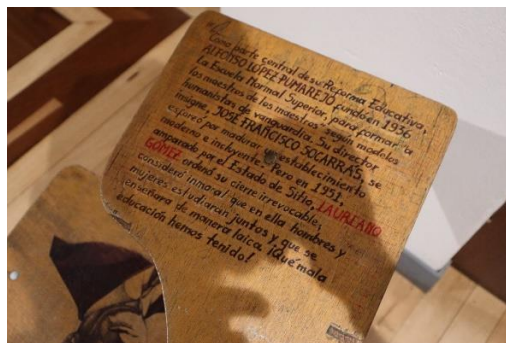 "Como parte central de su Reforma Educativa,
ALFONSO LÓPEZ PUMAREJO fundó en 1936
la Escuela Normal Superior, para formar a
los maestros de los maestros según modelos
humanistas de vanguardia. Su director
insigne, JOSE FRANCISCO SOCARRÁS, se
esmeró por madurar establecimiento
moderno e incluyente. Pero en 1951,
amparado por el Estado de Sitio, LAUREANO
GÓMEZ ordenó su cierre irrevocable;
consideró inmoral que en ella hombres y
mujeres estudiaran juntos y que se
enseñara de manera laica. ¡Qué mala
educación hemos tenido!